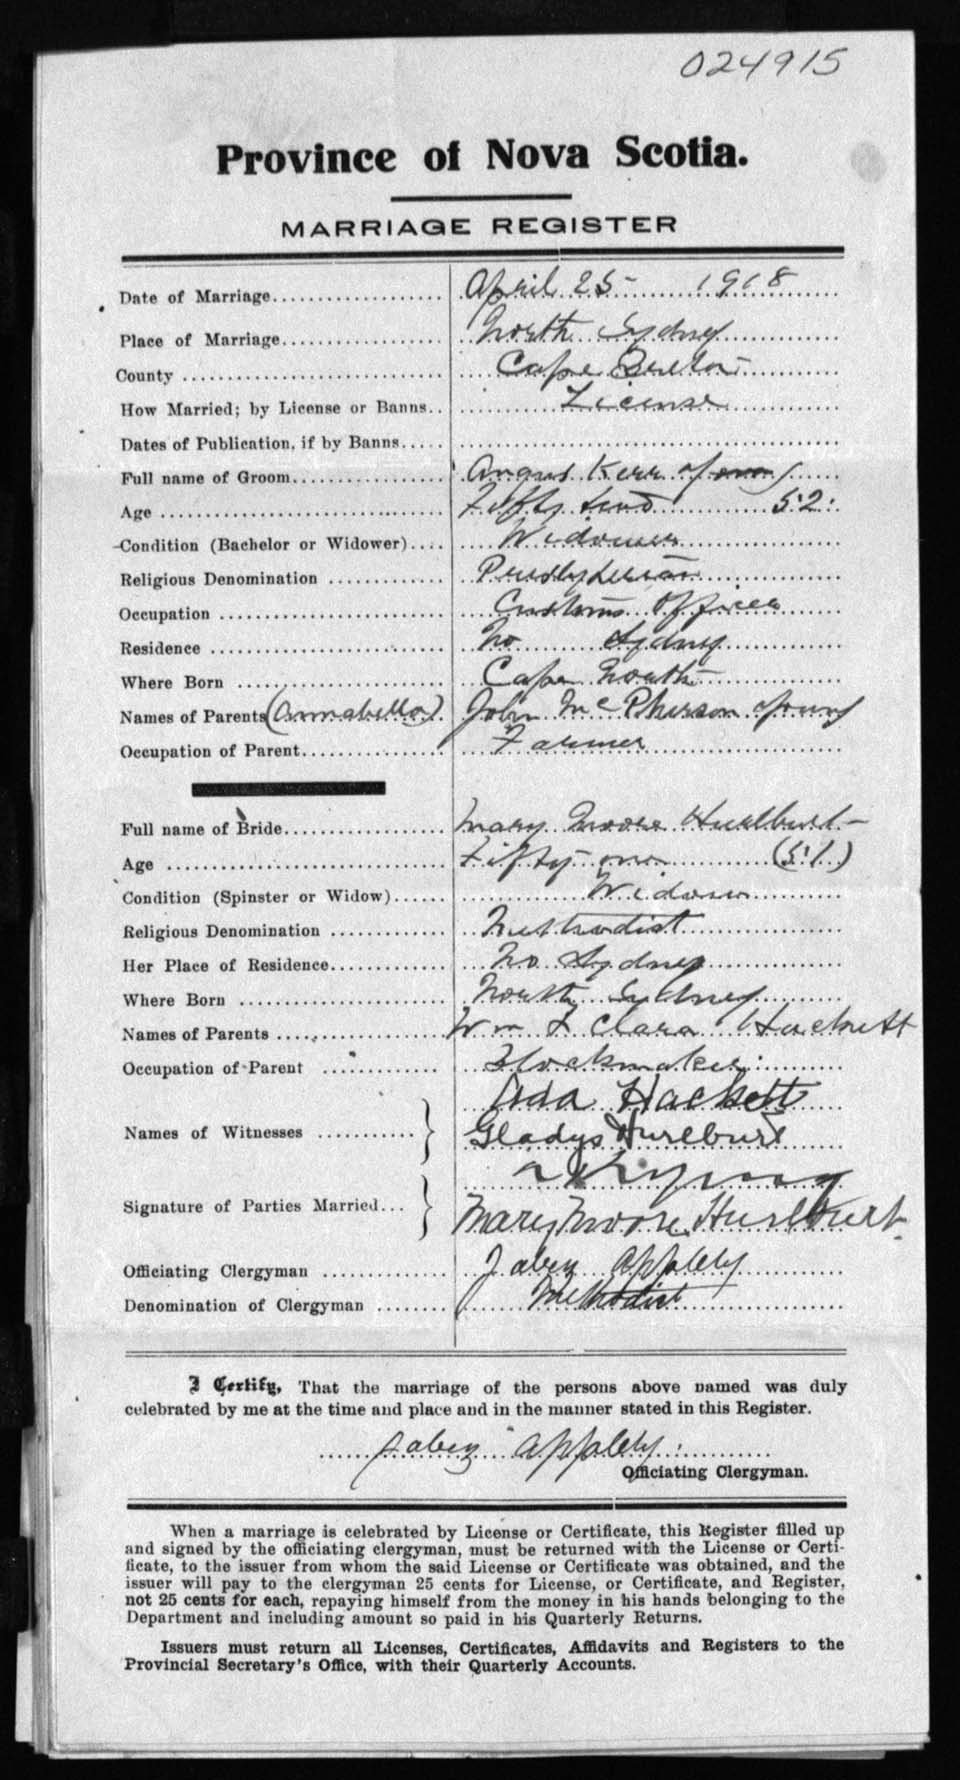 024915
Province of Nova Scotia.
MARRIAGE REGISTER
Date of Marriage April 25 1918
Place of Marriage North Sydney
County Cape Breton
How Married; by License or Banns.. License
Dates of Publication, if by Banns
Full name of Groom Angus Kerr
Age Fifty two 52
Condition (Bachelor or Widower) Widower
Religious Denomination Presbyterian
Occupation Customs Officer
Residence No Sydney
Where Born Cape North
Names of Parents (Annabella) John McPherson Young
Occupation of Parent Farmer
Full name of Bride Mary Moore Hurlburt
Age Fifty one (51)
Condition (Spinster or Widow) Widow
Religious Denomination Methodist
Her Place of Residence No Sydney
Where Born North Sydney
Names of Parents Wm & Clara Hackett
Occupation of Parent Blockmaker
Ada Hackett
Names of Witnesses Gladys Hurlburt
A K Young
Signature of Parties Married... Mary Moore Hurlburt
Officiating Clergyman Jabez Appleby
Denomination of Clergyman Methodist
I Certify, That the marriage of the persons above named was duly
celebrated by me at the time and place and in the manner stated in this Register.
Jabez Appleby
Officiating Clergyman.
When a marriage is celebrated by License or Certificate, this Register filled up
and signed by the officiating clergyman, must be returned with the License or Certi-
ficate, to the issuer from whom the said License or Certificate was obtained, and the
issuer will pay to the clergyman 25 cents for License, or Certificate, and Register,
not 25 cents for each, repaying himself from the money in his hands belonging to the
Department and including amount so paid in his Quarterly Returns.
Issuers must return all Licenses, Certificates, Affidavits and Registers to the
Provincial Secretary's Office, with their Quarterly Accounts.